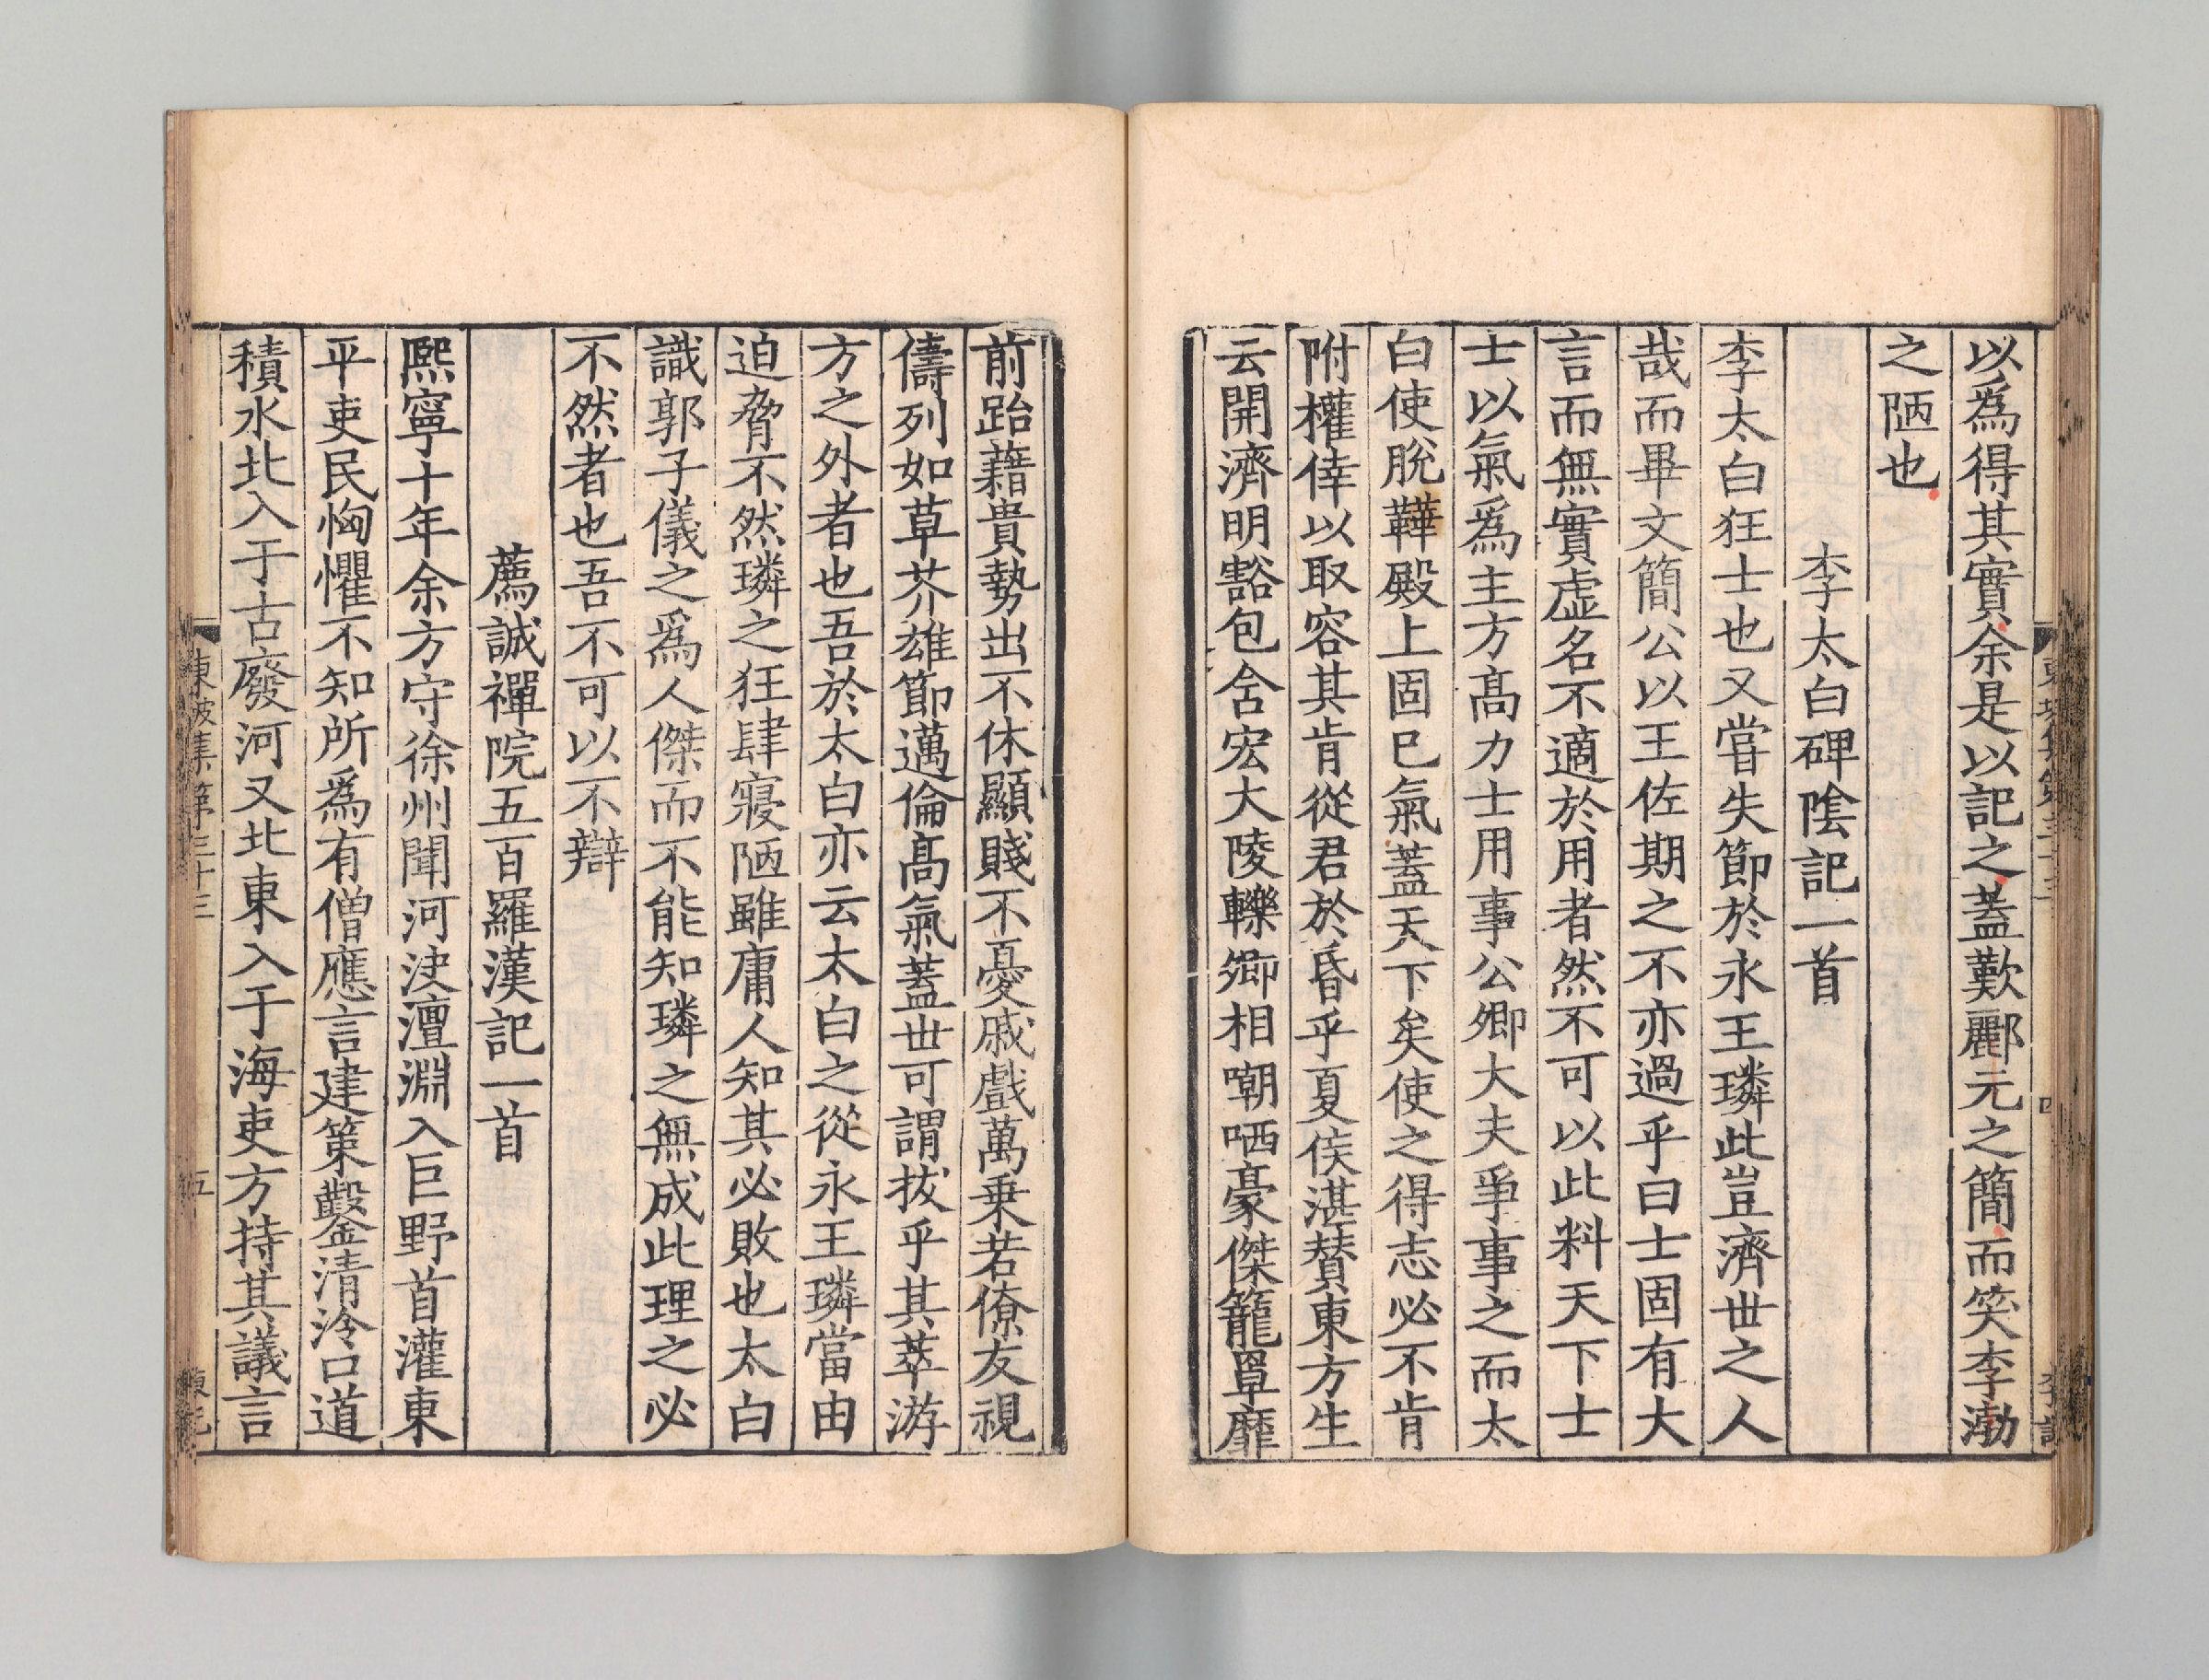 以爲得其實余是以記之蓋歎酈元之簡而笑李渤
之陋也
李太白碑陰記一首
李太白狂士也又甞失節於永王璘此豈濟世之人
哉而畢文簡公以王佐期之不亦過乎曰士固有大
言而無實虛名不適於用者然不可以此料天下士
士以氣爲主方髙力士用事公卿大夫爭事之而太
白使脫鞾殿上固已氣蓋天下矣使之得志必不肯
附權倖以取容其肯從君於昏乎夏侯湛賛東方生
云開濟明豁包含宏大陵轢卿相嘲哂豪傑籠罩靡
前跆藉貴勢出不休顯賤不憂戚戲萬乗若僚友視
儔列如草芥雄節邁倫髙氣蓋世可謂拔乎其萃游
方之外者也吾於太白亦云太白之從永王璘當由
迫脅不然璘之狂肆寢陋雖庸人知其必敗也太白
識郭子儀之爲人傑而不能知璘之無成此理之必
不然者也吾不可以不辯
薦誠禪院五百羅漢記一首
熙寧十年余方守徐州聞河決澶淵入巨野首灌東
平吏民恟懼不知所爲有僧應言建策鑿清泠口道
積水北入于古廢河又北東入于海吏方持其議言
東坡集第三十三
五